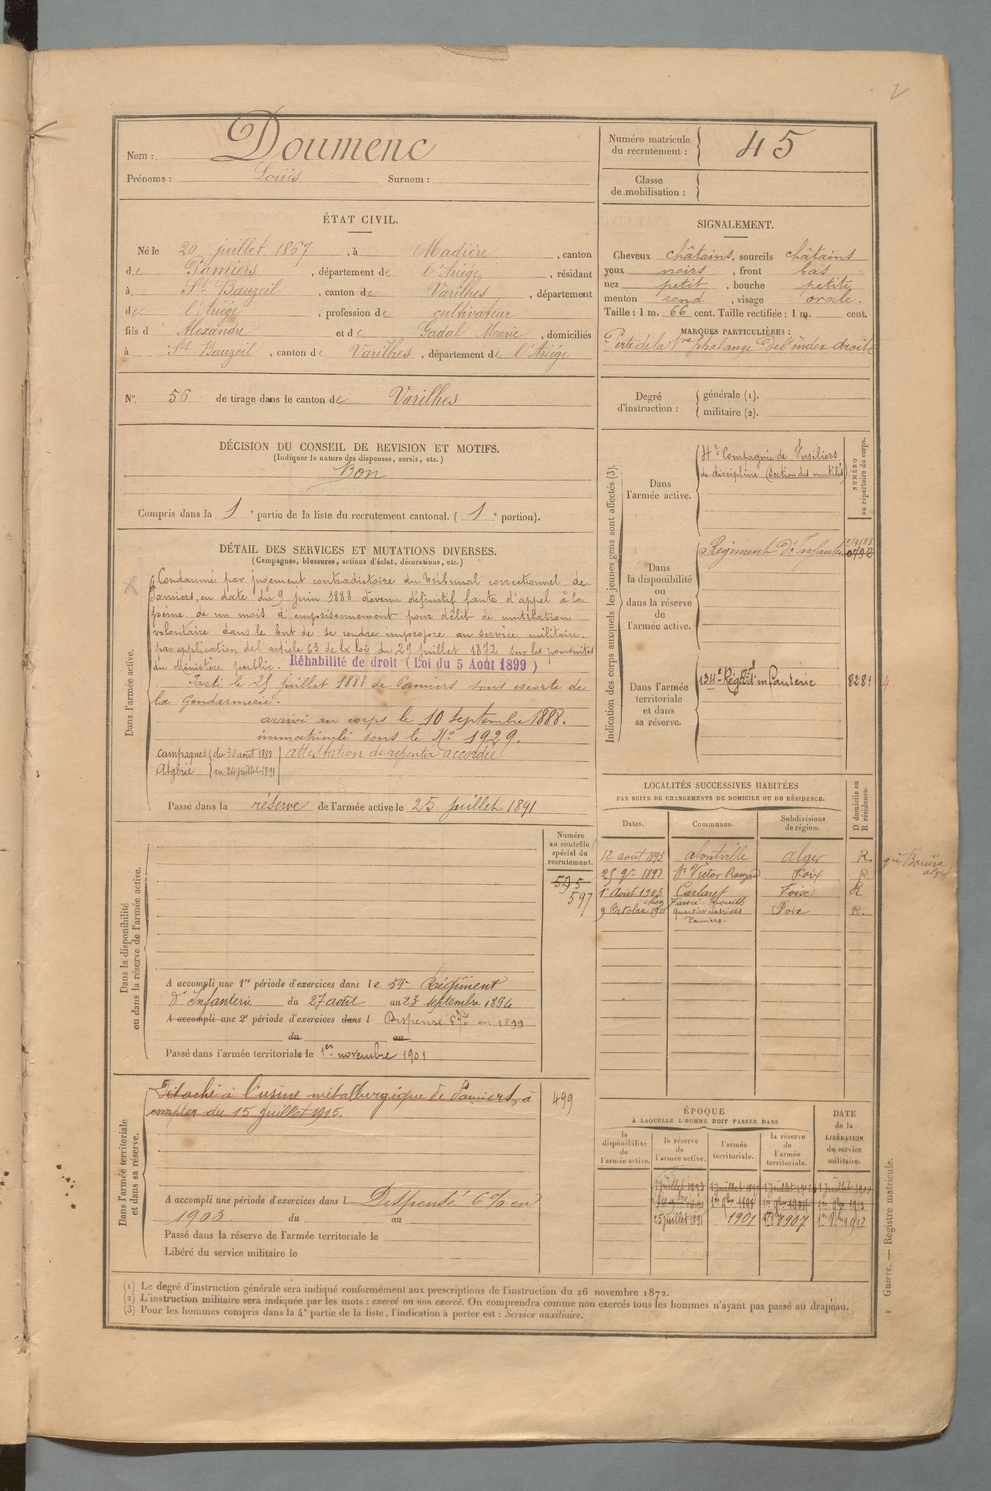 Nom : Doumenc
Prénoms : Louis Surnom :
Numéro matricule
du recrutement : 45
Classe
de mobilisation :
ÉTAT CIVIL.
Né le 20 juillet 1867, à Madière, canton
de Pamiers, département de l'Ariège, résidant
à St Bauzeil, canton de Varilhes, département
de l'Ariège, profession de cultivateur
fils d' Alexandre et de Gadal Marie, domiciliés
à St Bauzeil, canton de Varilhes, département de l'Ariège
N° 56 de tirage dans le canton de Varilhes
SIGNALEMENT.
Cheveux châtains, sourcils châtains
yeux noirs, front bas
nez petit, bouche petite,
menton rond, visage ovale.
Taille : 1 m. 66 cent. Taille rectifiée : 1 m. cent.
MARQUES PARTICULIÈRES :
Perte de la 1re phalange de l'index droit
Degré
d'instruction : générale (1).
militaire (2).
DÉCISION DU CONSEIL DE REVISION ET MOTIFS.
(Indiquer la nature des dispenses, sursis, etc.)
Bon
Compris dans la 1e partie de la liste du recrutement cantonal. (1e portion).
DÉTAIL DES SERVICES ET MUTATIONS DIVERSES.
(Campagnes, blessures, actions d'éclat, décorations, etc.)
Dans l'armée active.
Condamné par jugement contradictoire du tribunal correctionnel de
Pamiers, en date du 9 juin 1888 devenu définitif faute d'appel à la
peine de un mois d'emprisonnement pour délit de mutilation
volontaire dans le but de se rendre impropre au service militaire.
par application de l'article 63 de la loi du 27 juillet 1872 sur les poursuites
du Ministère public. Réhabilité de droit (Loi du 5 Août 1899)
Parti le 25 juillet 1888 de Pamiers sous escorte de
la Gendarmerie.
arrivé au corps le 10 septembre 1888.
immatriculé sous le N° 1929.
Campagnes du 30 août 1888 attestation de repentir accordée
Algérie au 24 juillet 1891
Passé dans la réserve de l'armée active le 25 juillet 1891
Indication des corps auxquels les jeunes gens sont affectés (3).
NUMÉRO
au répertoire du corps.
Dans
l'armée active.
4e Compagnie de Fusiliers
de discipline (Section des mutilés)
Dans
la disponibilité
ou
dans la réserve
de
l'armée active.
Régiment d'Infanterie
Dans l'armée
territoriale
et dans
sa réserve.
134e Régt d'infanterie 8281
LOCALITÉS SUCCESSIVES HABITÉES
PAR SUITE DE CHANGEMENTS DE DOMICILE OU DE RÉSIDENCE.
Dates. Communes. Subdivisions
de région. D domicile ou
R résidence.
12 août 1893 Alger R.
25 9bre 1897 St Victor Rouzaud Foix R
1er Août 1903 Carlaret Foix R
9 Octobre Foix R.
Pamiers.
Bouïra
alger
Dans la disponibilité
ou dans la réserve de l'armée active.
Numéro
au contrôle
spécial du
recrutement.
595
597
A accompli une 1re période d'exercices dans le 59e Régiment
d'Infanterie du 27 août au 23 septembre 1894
A accompli une 2e période d'exercices dans l Dispensé 6% en 1899
du au
Passé dans l'armée territoriale le 1er novembre 1901
Dans l'armée territoriale
et dans sa réserve.
Détaché à l'usine métallurgique de Pamiers, à 499
compter du 15 juillet 1915.
A accompli une période d'exercices dans l Dispensé 6% en
1903 du au
Passé dans la réserve de l'armée territoriale le
Libéré du service militaire le
ÉPOQUE
À LAQUELLE L'HOMME DOIT PASSER DANS
DATE
de la
LIBÉRATION
du service
militaire.
la
disponibilité
de
l'armée active.
la réserve
de
l'armée active.
l'armée
territoriale.
la réserve
de
l'armée
territoriale.
25 juillet 1891 1901 1907 1913
(1) Le degré d'instruction générale sera indiqué conformément aux prescriptions de l'instruction du 26 novembre 1872.
(2) L'instruction militaire sera indiquée par les mots : exercé ou non exercé. On comprendra comme non exercés tous les hommes n'ayant pas passé au drapeau.
(3) Pour les hommes compris dans la 4e partie de la liste, l'indication à porter est : Service auxiliaire.
Guerre. — Registre matricule.